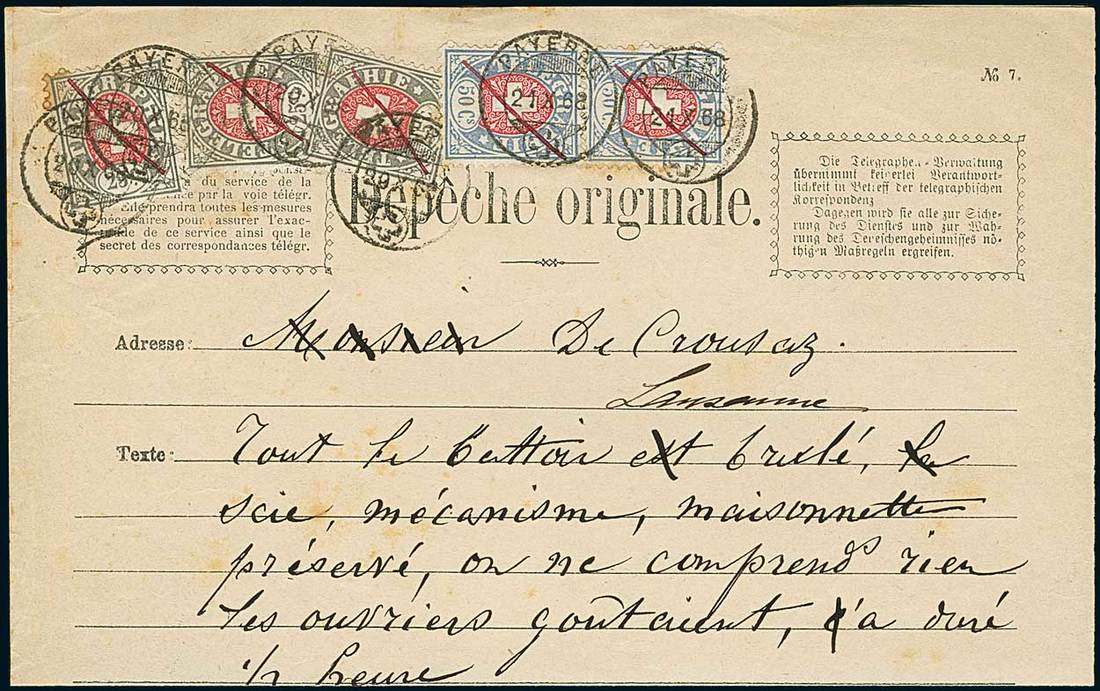 PAYERNE
21 X 68
50 C
№ 7.
du service de la
par la voie télégr.
prendra toutes les mesures
nécessaires pour assurer l'exac-
de ce service ainsi que le
secret des correspondances télégr.
Dépêche originale.
Die Telegraphen-Verwaltung
übernimmt keinerlei Verantwort-
lichkeit in Betreff der telegraphischen
Korrespondenz
Dagegen wird sie alle zur Siche-
rung des Dienstes und zur Wah-
rung des Depeschengeheimnisses nö-
thigen Maßregeln ergreifen.
Adresse: Monsieur De Crousaz.
Lausanne
Texte: Tout le battoir est brulé, la
scie, mécanisme, maisonnette
préservé, on ne comprend rien
les ouvriers goûtaient, ça duré
½ heure